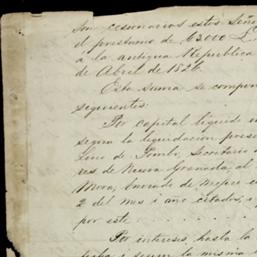 son cesionarios estos Seño
el prestamo de 63000 L
à la antigua Republica
de Abril de 1826.
Esta suma se compon
siguientes:
Por capital liquido
segun la liquidacion prese
Lino de Pombo, Secretario
res de Nueva Granada, al
Mora, Enviado de Mejico
2 del mes i año citados,
por este
Por intereses, hasta la
fecha i segun la misma